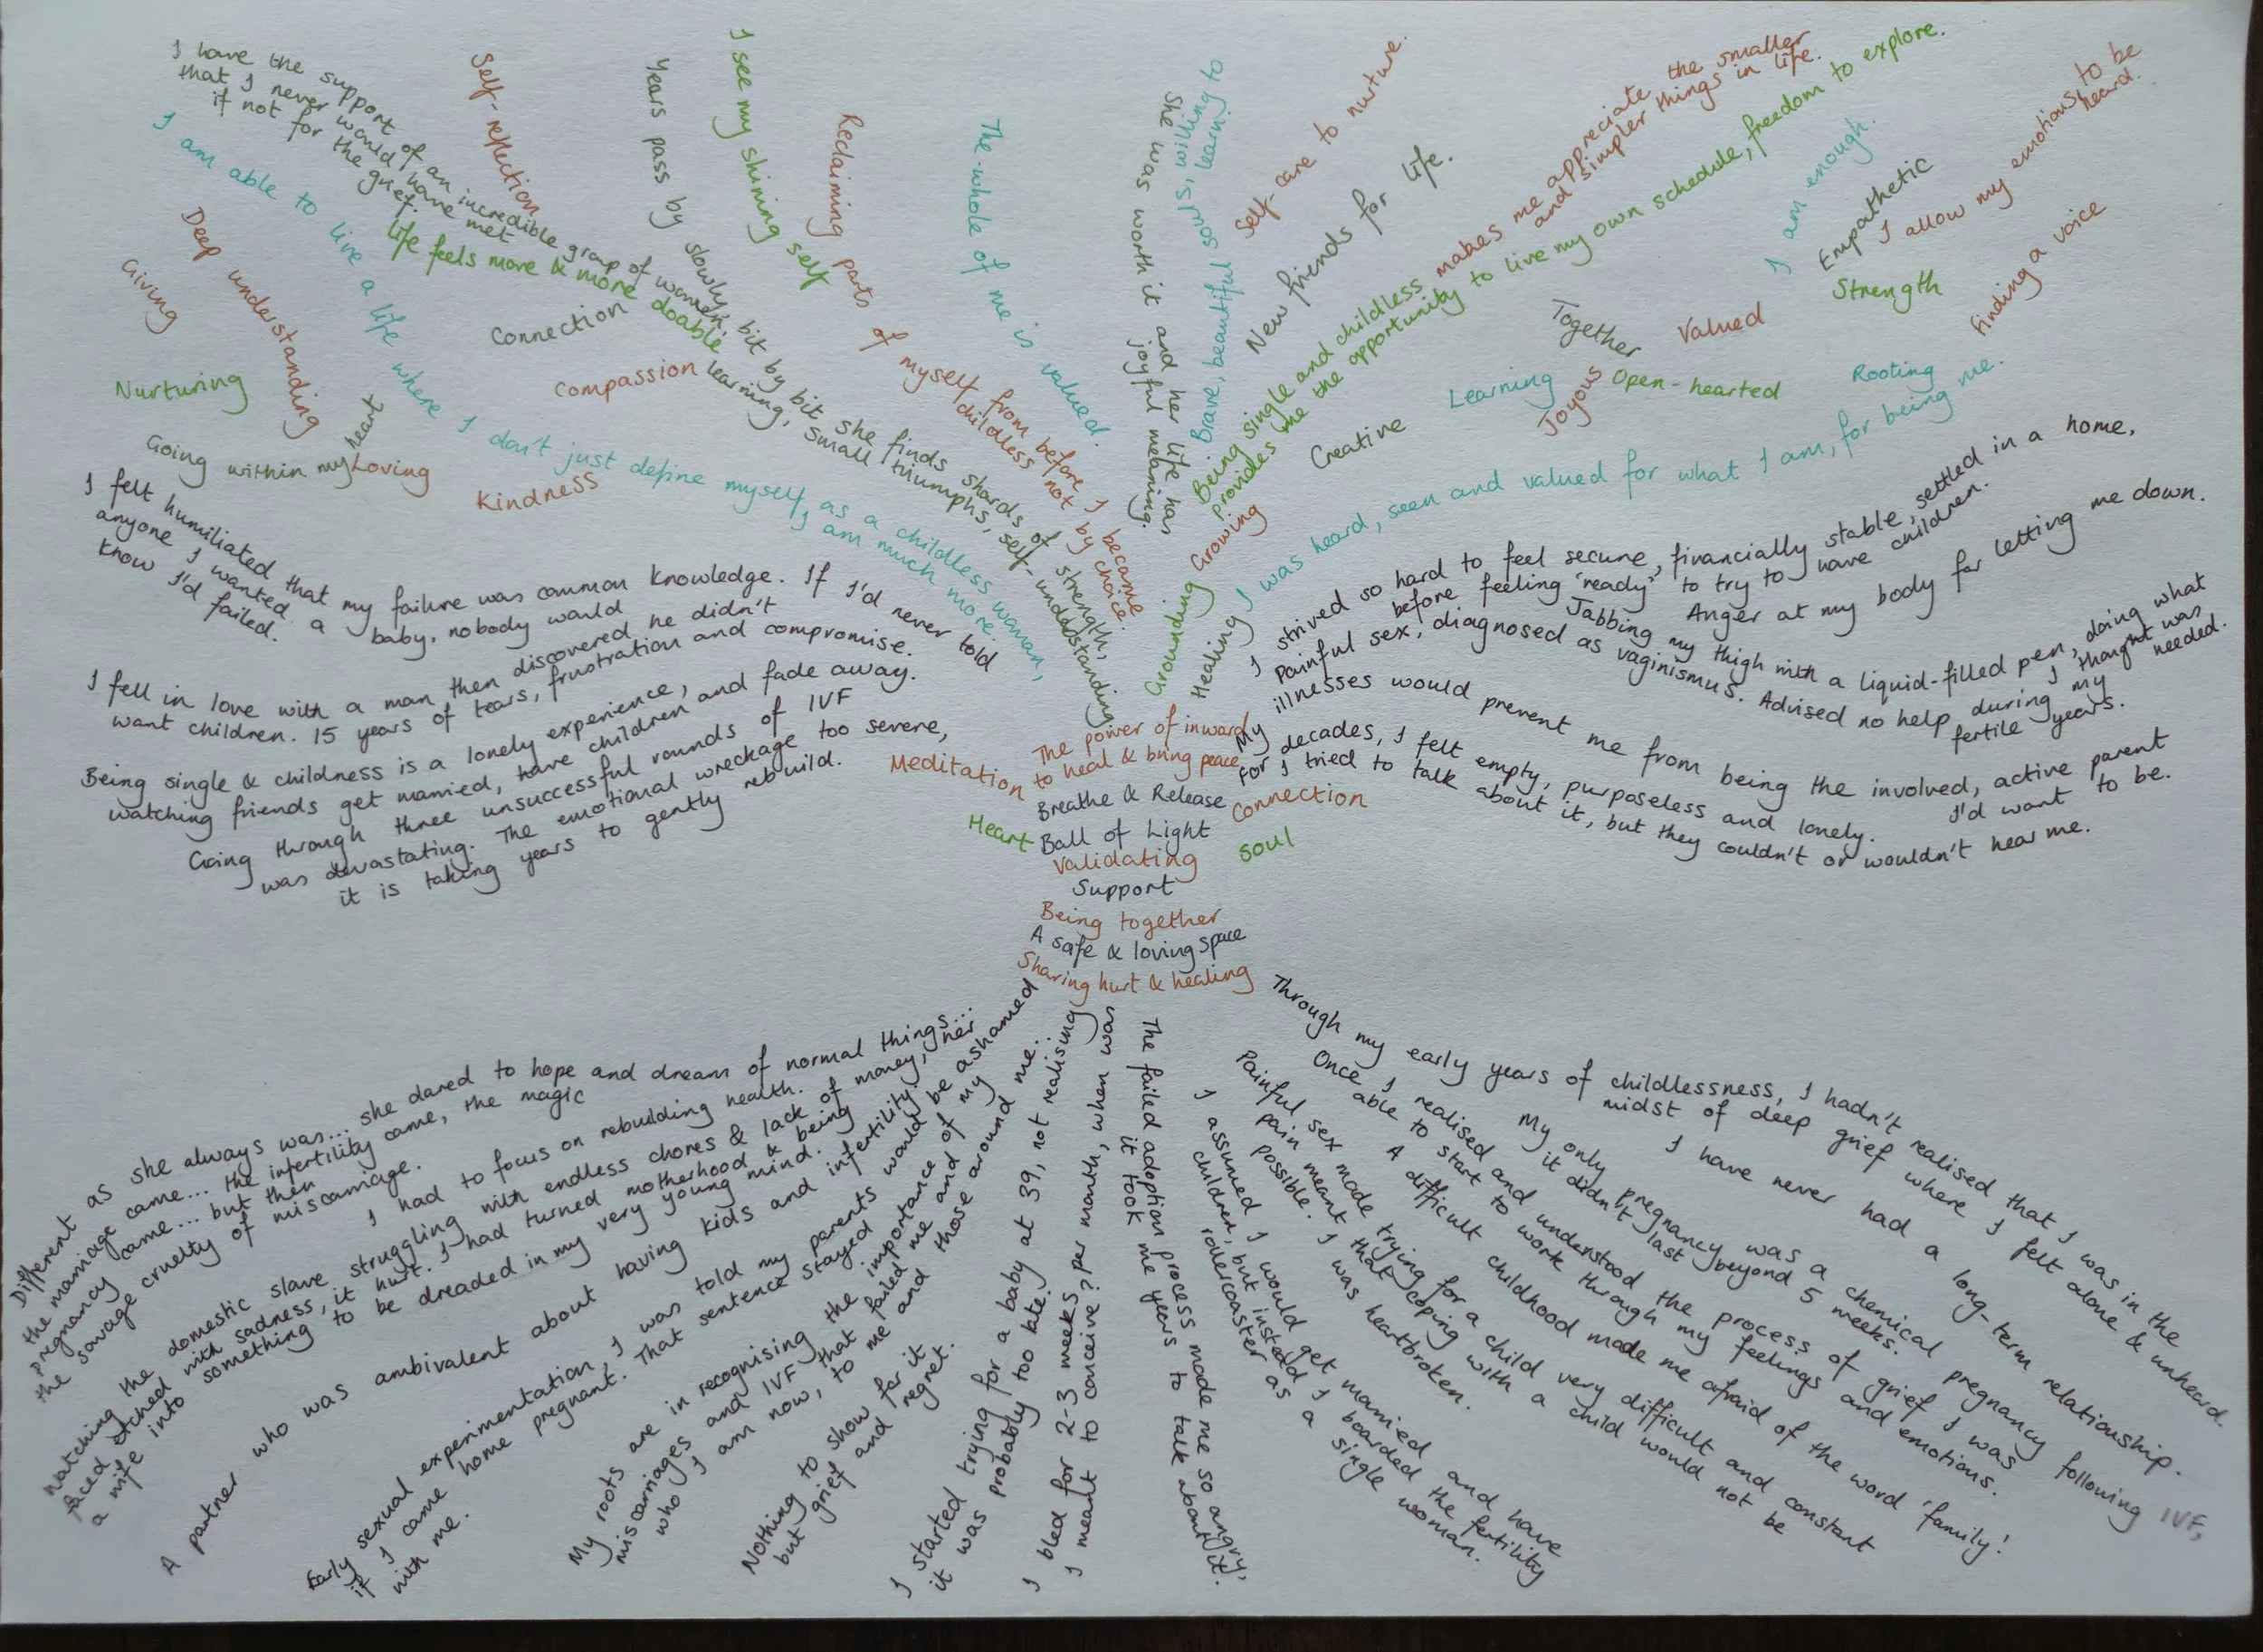 I have the support of an incredible group of women,
that I never would have met
if not for the grief.
I am able to live a life where I don't just define myself as a childless woman,
I am much more.
Self-reflection
Years pass by slowly, bit by bit she finds shards of strength,
learning, small triumphs, self-understanding
I see my shining self
Reclaiming parts of myself from before I became
childless not by choice.
The whole of me is valued.
She was worth it and her life has
joyful meaning.
Brave, beautiful souls, willing to
learn.
Self-care to nurture.
New friends for life.
Being single and childless makes me appreciate the smaller
and simpler things in life.
provides me the opportunity to live my own schedule, freedom to explore.
I am enough.
Empathetic
I allow my emotions to be
heard.
Strength
Finding a voice
Deep understanding
Giving
life feels more & more doable
Connection
Compassion
Nurturing
Going within my heart
Loving
Kindness
Together
Valued
Learning
Joyous
Open-hearted
Rooting
Creative
Growing
Grounding
Healing
I was heard, seen and valued for what I am, for being me.
I felt humiliated that my failure was common knowledge. If I'd never told
anyone I wanted a baby, nobody would
know I'd failed.
I fell in love with a man then discovered he didn't
want children. 15 years of tears, frustration and compromise.
Being single & childness is a lonely experience,
watching friends get married, have children and fade away.
Going through three unsuccessful rounds of IVF
was devastating. The emotional wreckage too severe,
it is taking years to gently rebuild.
I strived so hard to feel secure, financially stable, settled in a home,
before feeling 'ready' to try to have children.
Anger at my body for letting me down.
Jabbing my thigh with a liquid-filled pen, doing what
I thought was
needed.
Painful sex, diagnosed as vaginismus. Advised no help during my
fertile years.
My illnesses would prevent me from being the involved, active parent
I'd want to be.
For decades, I felt empty, purposeless and lonely.
I tried to talk about it, but they couldn't or wouldn't hear me.
The power of inward
to heal & bring peace
Meditation
Breathe & Release
Connection
Heart
Ball of Light
Soul
Validating
Support
Being together
A safe & loving space
Sharing hurt & healing
Different as she always was... she dared to hope and dream of normal things...
the marriage came... the infertility came, the magic
pregnancy came... but then
the savage cruelty of miscarriage.
I had to focus on rebuilding health.
Watching the domestic slave struggling with endless chores & lack of money, her
faced etched with sadness, it hurt. I had turned motherhood & being
a wife into something to be dreaded in my very young mind.
A partner who was ambivalent about having kids and infertility.
Early sexual experimentation, I was told my parents would be ashamed
if I came home pregnant. That sentence stayed
with me.
My roots are in recognising the importance of my
miscarriages and IVF that failed me and my
who I am now, to me and those around me..
Nothing to show for it
but grief and regret.
I started trying for a baby at 39, not realising
it was probably too late.
I bled for 2-3 weeks per month, when was
I meant to conceive?
The failed adoption process made me so angry,
it took me years to talk about it.
I assumed I would get married and have
children, but instead I boarded the fertility
rollercoaster as a single woman.
Painful sex made trying for a child very difficult and constant
pain meant that coping with a child would not be
possible. I was heartbroken.
A difficult childhood made me afraid of the word 'family'!
Once I realised and understood the process of grief I was
able to start to work through my feelings and emotions.
My only pregnancy was a chemical pregnancy following IVF,
it didn't last beyond 5 weeks.
I have never had a long-term relationship.
Through my early years of childlessness, I hadn't realised that I was in the
midst of deep grief where I felt alone & unheard.